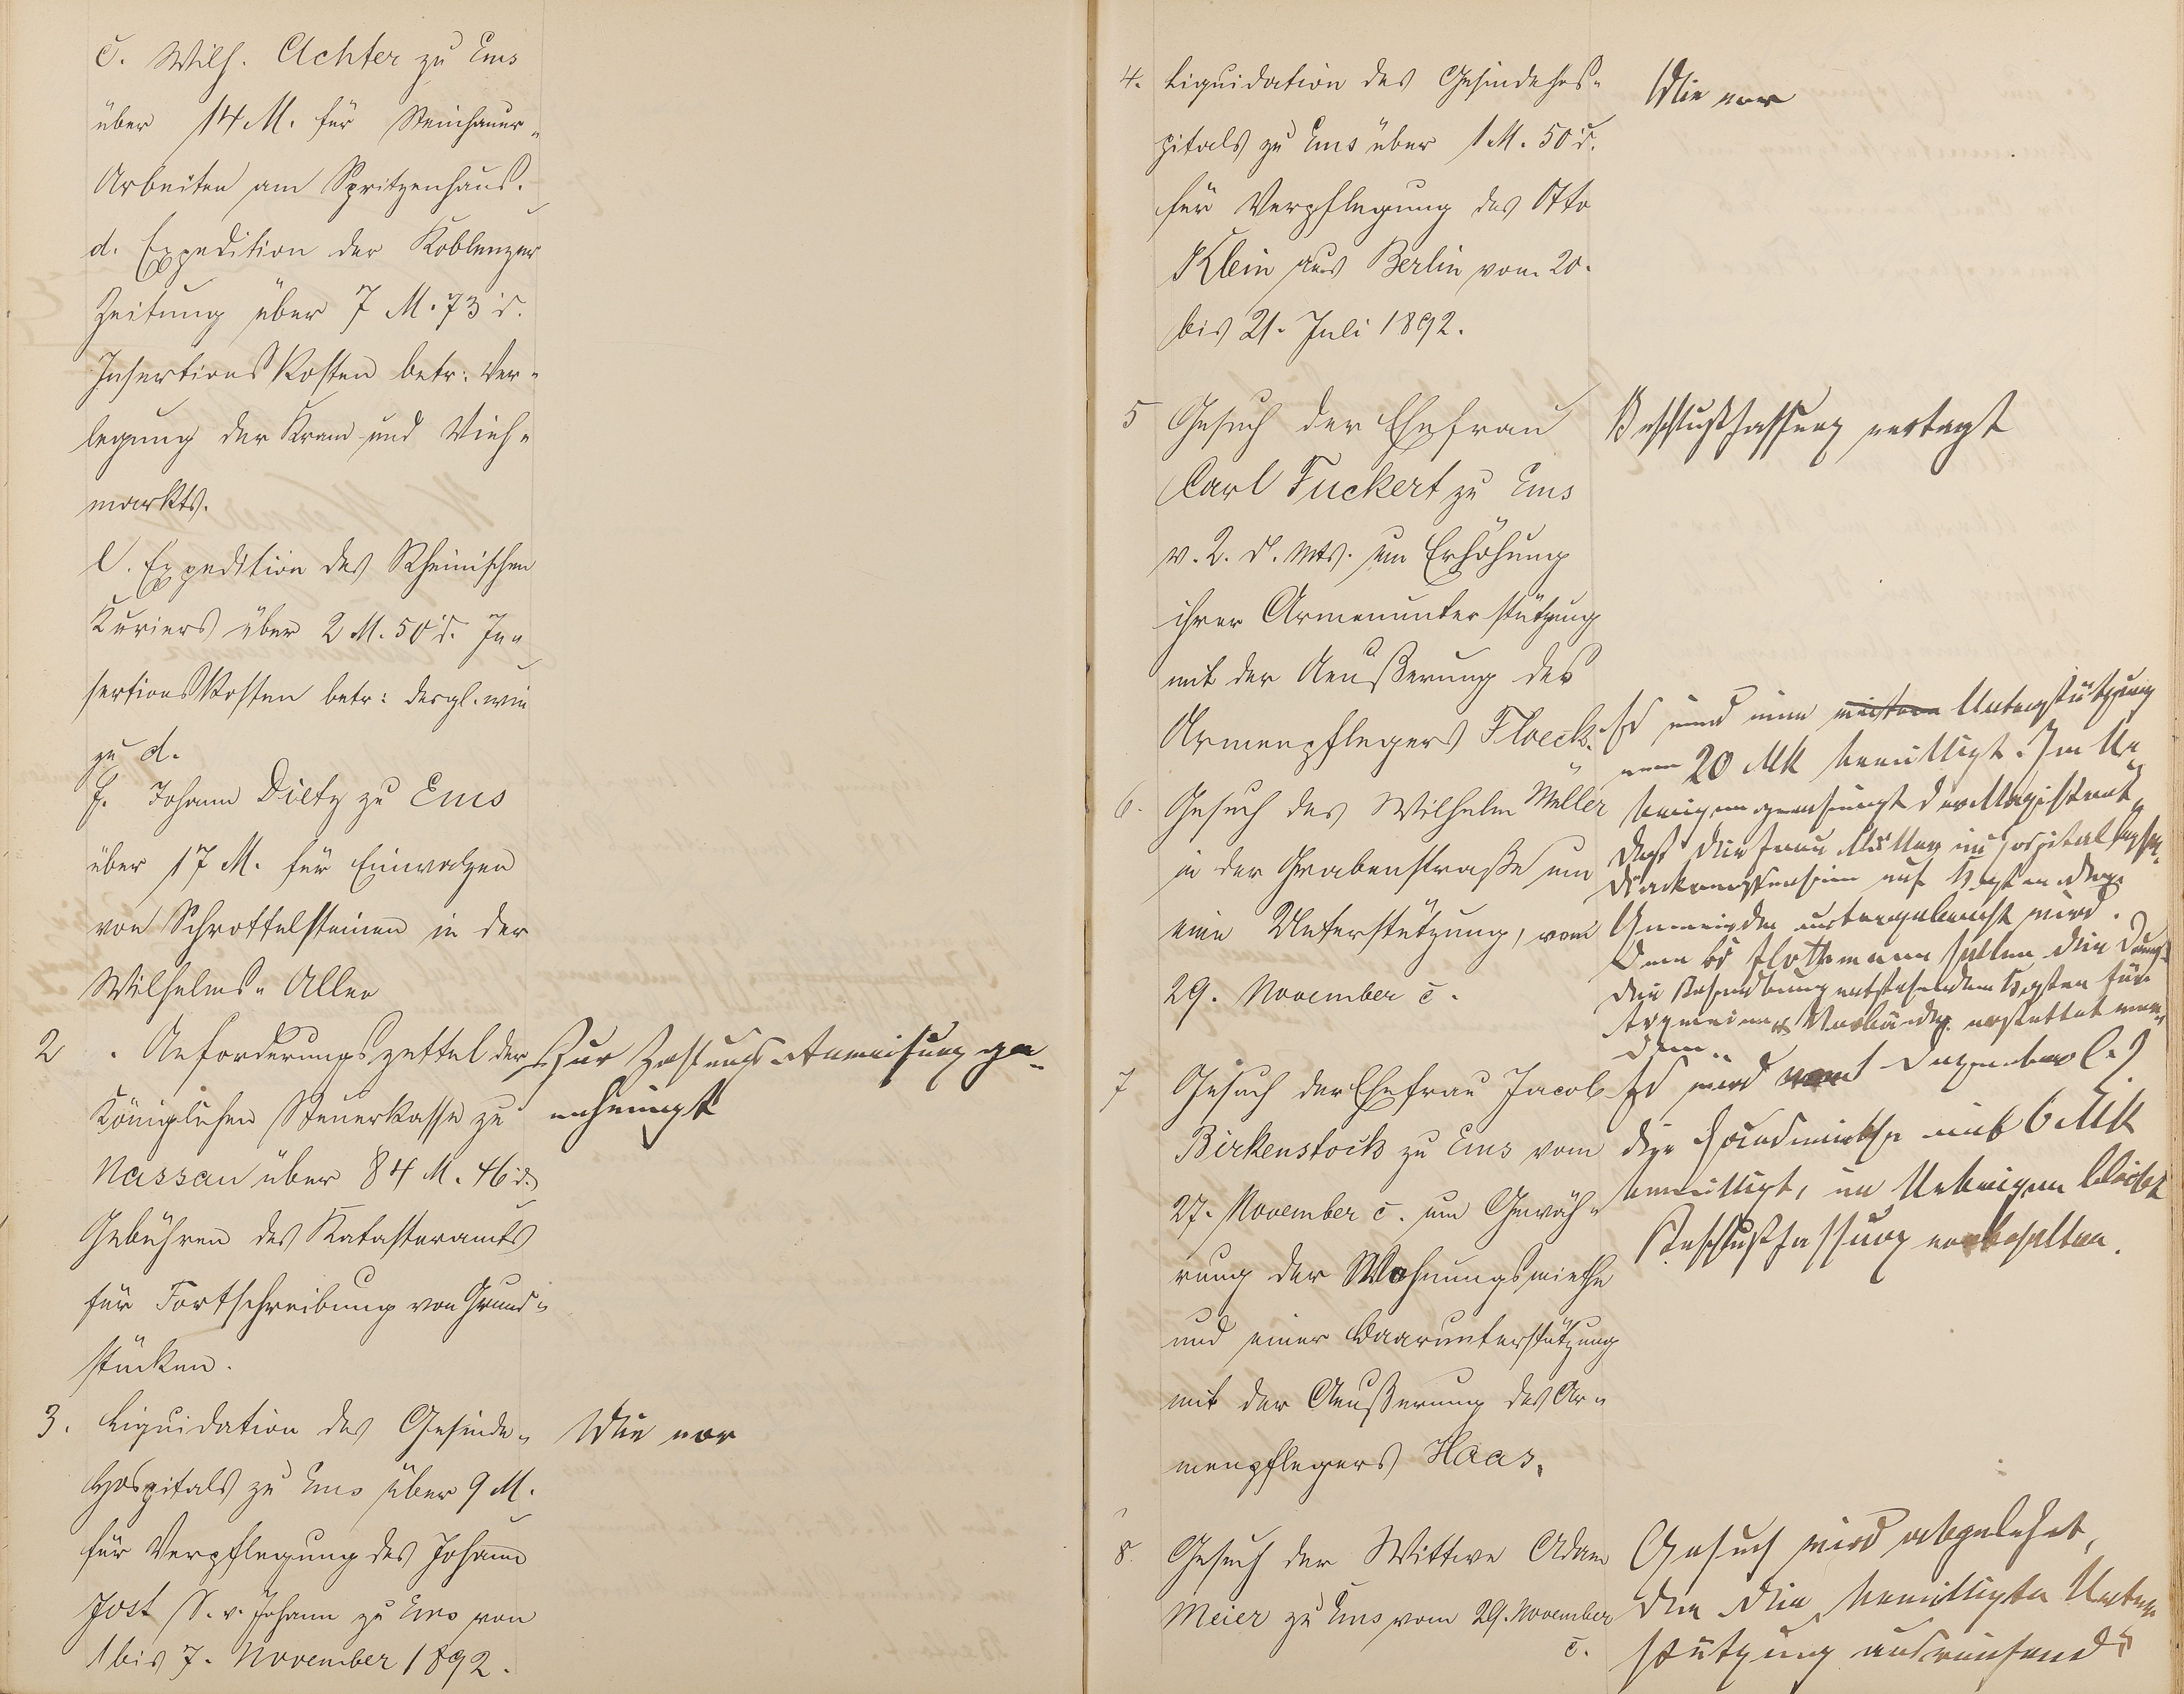 c. Wilh. Achter zu Ems
über 14 M. für Steinhauer-
Arbeiten am Spritzenhaus.
d. Expedition der Koblenzer
Zeitung über 7 M. 73 d.
Insertionskosten betr: Ver-
legung der Kram und Vieh-
markts.
e. Expedition des Rheinischen
Kuriers über 2 M. 50 d. In-
sertionskosten betr: desgl. wie
zu d.
f. Johann Dietz zu Ems
über 17 M. für Einwalzen
von Schrottelsteinen in der
Wilhelms-Allee
2. Anforderungszettel der
Königlichen Steuerkasse zu
Nassau über 84 M. 46 d.
Gebühren des Katasteramts
für Fortschreibung von Grund-
stücken.
Zur Zahlungs-Anweisung ge-
nehmigt
3. Liquidation des Gesinde-
Hospitals zu Ems über 9 M.
für Verpflegung des Johann
Jost S. v. Johann zu Ems von
1 bis 7. November 1892.
Wie vor
4. Liquidation des Gesindehos-
pitals zu Ems über 1 M. 50 d.
für Verpflegung des Otto
Klein aus Berlin vom 20.
bis 21. Juli 1892.
Wie vor
5 Gesuch der Ehefrau
Carl Fuckert zu Ems
v. 2. d. Mts. um Erhöhung
ihrer Armenunterstützung
mit der Aeußerung des
Armenpflegers Floeck.
Beschlußfassung vertagt
6. Gesuch des Wilhelm Müller
in der Grabenstraße um
eine Unterstützung, vom
29. November c.
Es wird eine Unterstützung
von 20 Mk bewilligt. Im Ue-
brigen genehmigt der Magistrat
daß die Frau Müller im Hospital
auf Kosten der
Gemeinde untergebracht wird.
sollen die durch
die entstehenden Kosten für
erstattet wer-
den.
7 Gesuch der Ehefrau Jacob
Birkenstock zu Ems vom
27. November c. um Gewäh-
rung der Wohnungsmiethe
und einer Baarunterstützung
mit der Aeußerung des Ar-
menpflegers Haas.
Es wird vom 1 Dezember c.
die Hausmiethe mit 6 Mk
bewilligt, im Uebrigen bleibt
Beschlußfassung vorbehalten.
8. Gesuch der Wittwe Adam
Meier zu Ems vom 29. November
c.
Gesuch wird abgelehnt,
da die bewilligte Unter-
stützung ausreichend